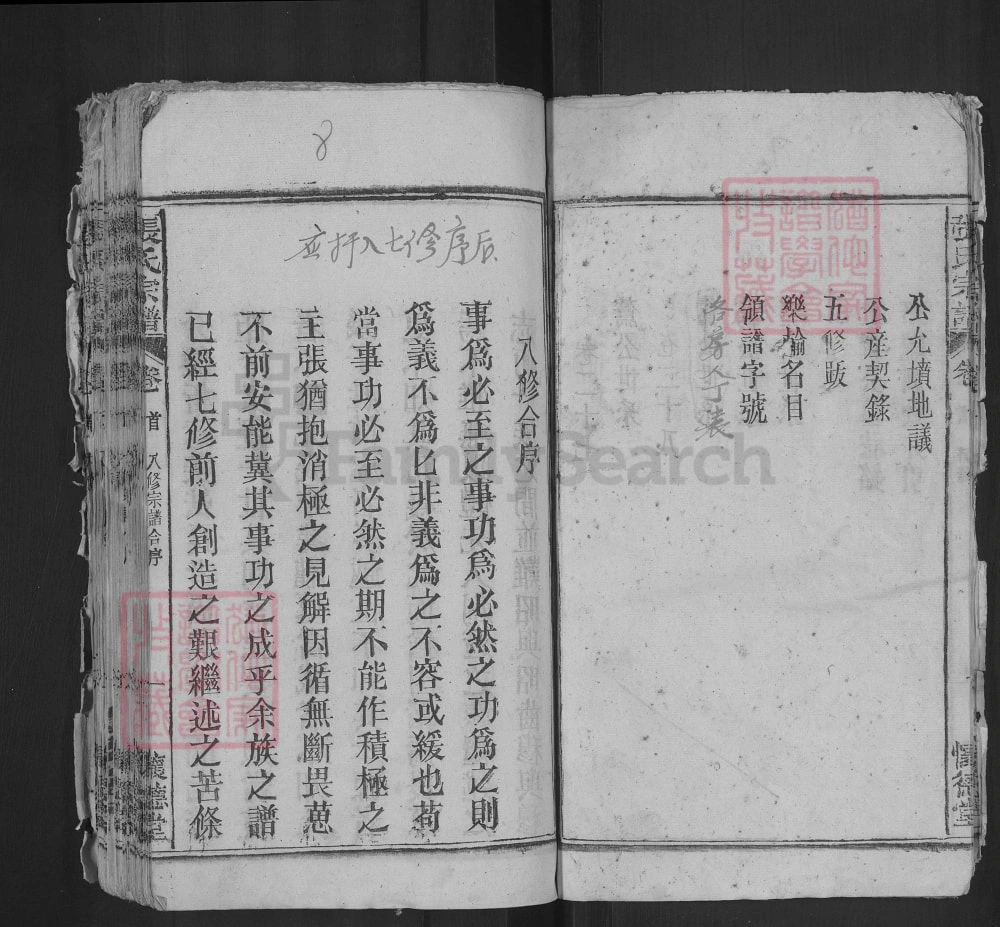 公允墳地議
公產契錄
五修跋
樂輸名目
領譜字號
張氏宗譜
卷
懷德堂
8
应打入七修序后
八修合序
事爲必至之事功爲必然之功爲之則
爲義不爲匕非義爲之不容或緩也苟
當事功必至必然之期不能作積極之
主張猶抱消極之見解因循無斷畏葸
不前安能冀其事功之成乎余族之譜
已經七修前人創造之艱繼述之苦條
張氏宗譜
卷
首
八修宗譜合序
一
懷德堂
FamilySearch